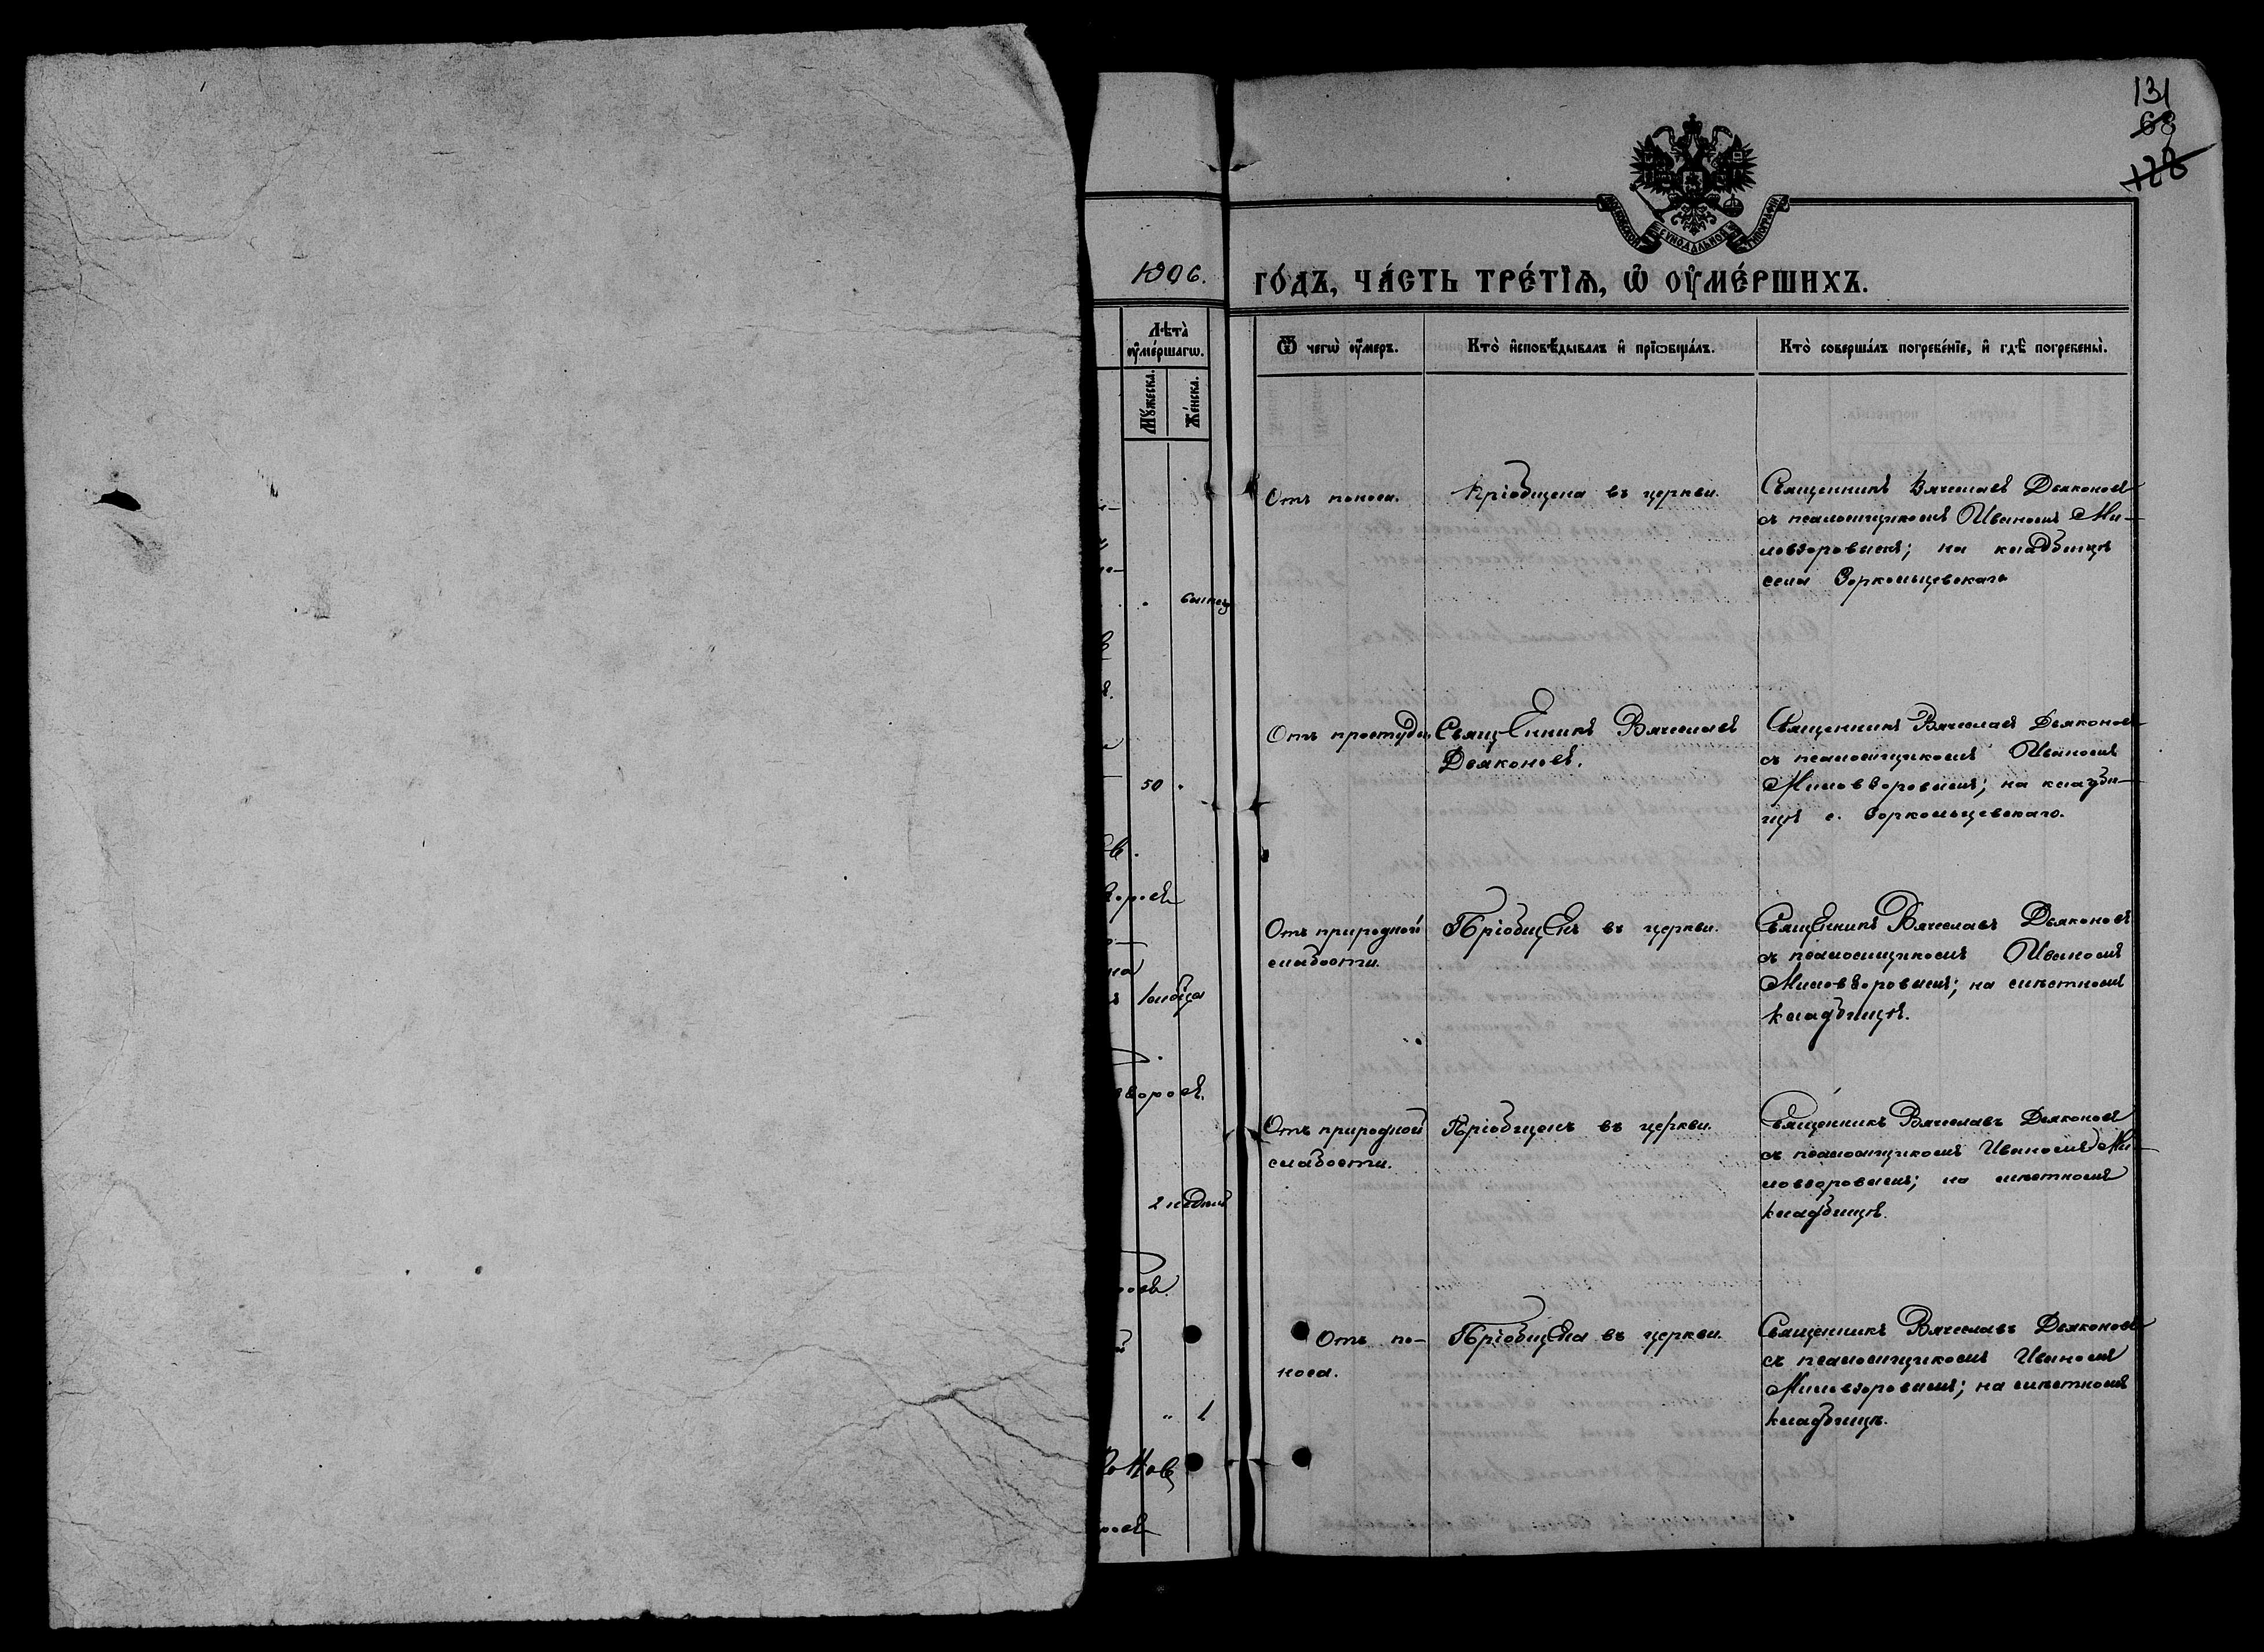 131
68
128
МОСКОВСКОЙ СѴНОДАЛЬНОЙ ТИПОГРАФІИ
1896.
го́дъ, ча́сть тре́тїѧ, ѽ ᲂу҆ме́ршихъ.
Лѣ́та ᲂу҆ме́ршагѡ.
Мꙋ́жеска.
Же́нска.
Ѿ чегѡ̀ ᲂу҆́меръ.
Кто̀ и҆сповѣ́дывалъ и҆ прїѡбща́лъ.
Кто̀ соверша́лъ погребе́нїе, и҆ гдѣ̀ погребены̀.
Отъ поноса.
Пріобщена въ церкви.
Священникъ Вячеславъ Дьяконовъ
съ псаломщикомъ Иваномъ Ми-
ловзоровымъ; на кладбищѣ
села Зоркольцевскаго
50
Отъ простуды
Священникъ Вячеславъ
Дьяконовъ.
Священникъ Вячеславъ Дьяконовъ
съ псаломщикомъ Иваномъ
Миловзоровымъ; на кладби-
щѣ с. Зоркольцевскаго.
Отъ природной
слабости.
Пріобщенъ въ церкви.
Священникъ Вячеславъ Дьяконовъ
съ псаломщикомъ Иваномъ
Миловзоровымъ; на мѣстномъ
кладбищѣ.
Отъ природной
слабости.
Пріобщенъ въ церкви.
Священникъ Вячеславъ Дьяконовъ
съ псаломщикомъ Иваномъ Ми-
ловзоровымъ; на мѣстномъ
кладбищѣ.
2 недѣли
1
Отъ по-
носа.
Пріобщена въ церкви.
Священникъ Вячеславъ Дьяконовъ
съ псаломщикомъ Иваномъ
Миловзоровымъ; на мѣстномъ
кладбищѣ.